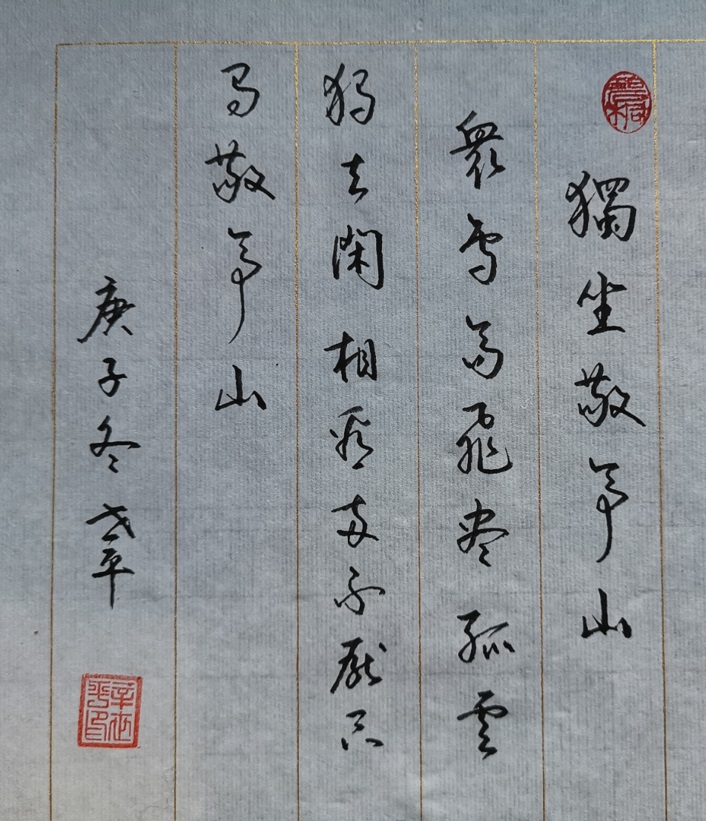 獨坐敬亭山
衆鳥高飛盡孤雲
獨去閑相看兩不厭只
有敬亭山
庚子冬